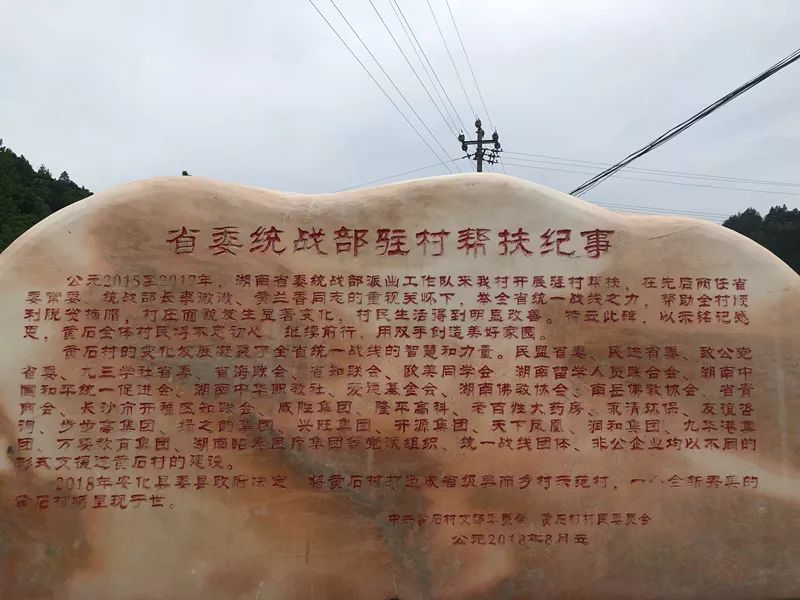 省委统战部驻村帮扶纪事
公元2015至2017年，湖南省委统战部派出工作队来我村开展驻村帮扶，在先后两任省
委常委、统战部长李微微、黄兰香同志的重视关怀下，举全省统一战线之力，帮助全村顺
利脱贫摘帽，村庄面貌发生显著变化，村民生活得到明显改善。特立此碑，以示铭记感
恩，黄石全体村民将不忘初心，继续前行，用双手创造美好家园。
黄石村的变化发展凝聚了全省统一战线的智慧和力量。民盟省委、民进省委、致公党
省委、九三学社省委、省海联会、省知联会、欧美同学会、湖南留学人员联合会、湖南中
国和平统一促进会、湖南中华职教社、爱德基金会、湖南佛教协会、南岳佛教协会、省青
商会、长沙市开福区知联会、威胜集团、隆平高科、老百姓大药房、永清环保、友谊咨
询、步步高集团、绿之韵集团、兴旺集团、开源集团、天下凤凰、润和集团、九华港集
团、万婴教育集团、湖南昭泰医疗集团等党派组织、统一战线团体、非公企业均以不同的
形式支援过黄石村的建设。
2018年安化县委县政府决定，将黄石村打造成省级美丽乡村示范村，一个全新秀美的
黄石村将呈现于世。
中共黄石村支部委员会 黄石村村民委员会
公元2018年8月立